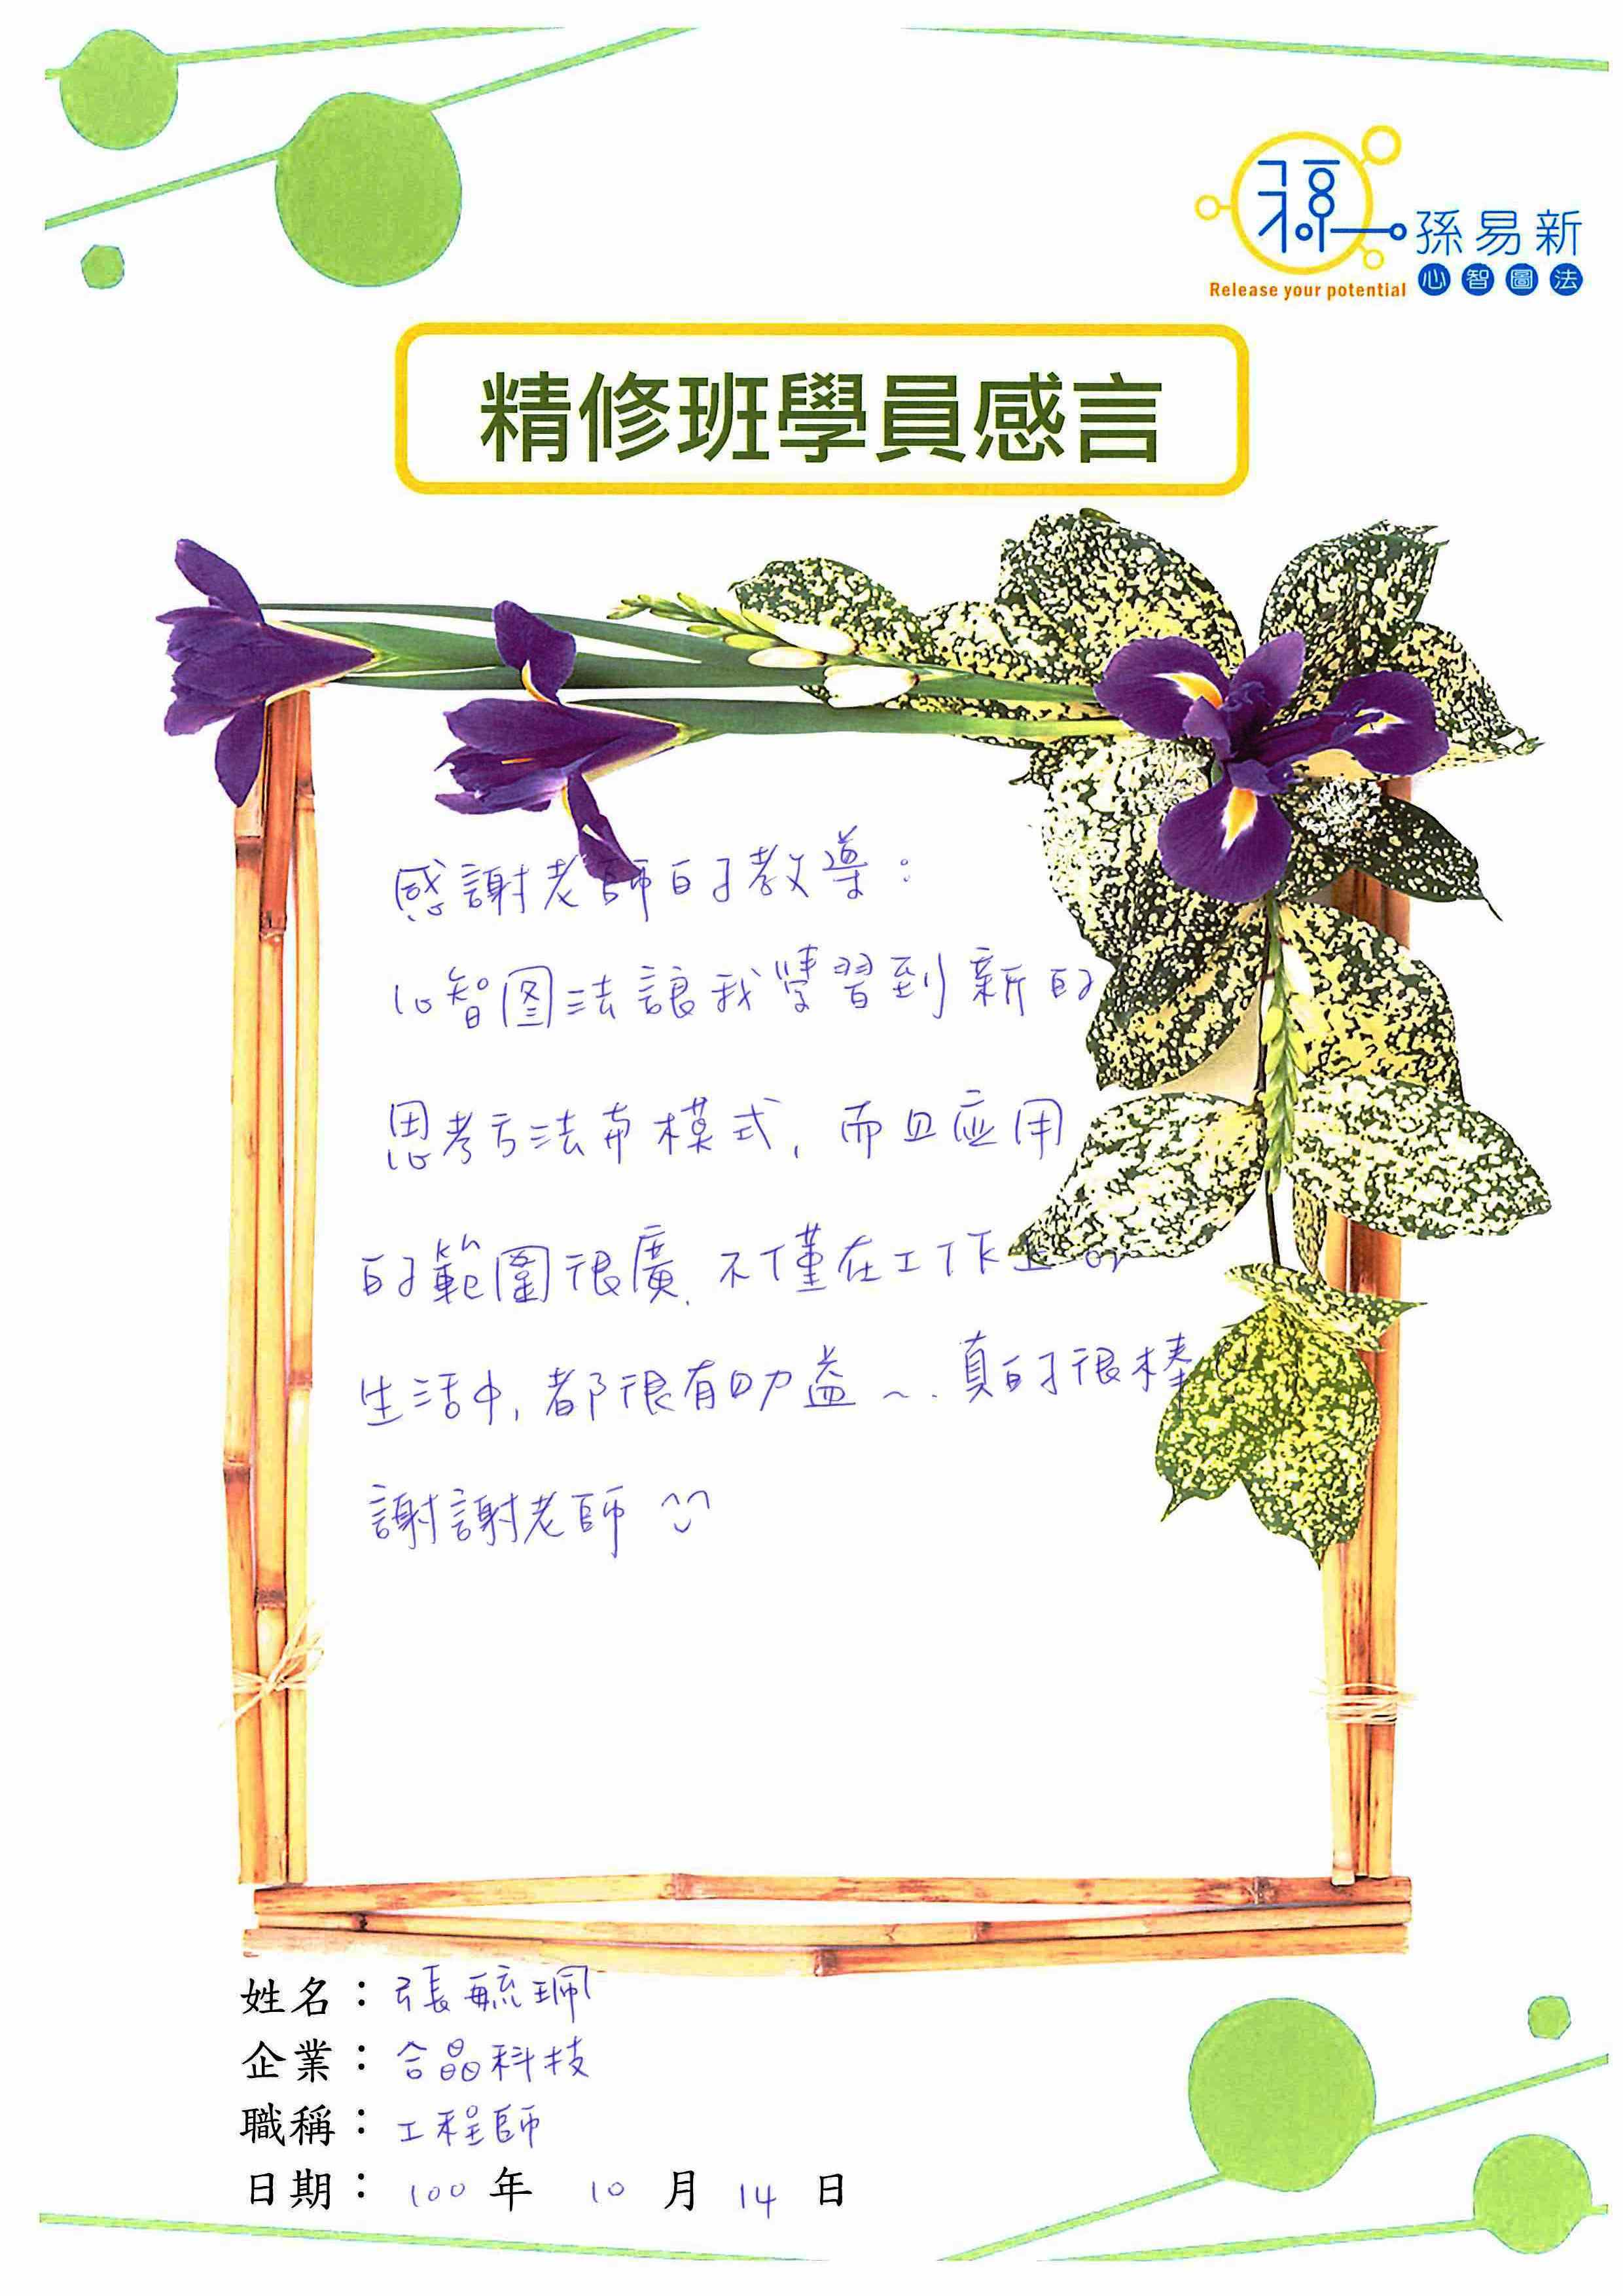 孫易新
心智圖法
Release your potential
精修班學員感言
感謝老師的教導：
心智図法讓我學習到新的
思考方法和模式，而且应用
的範圍很廣，不僅在工作上 or
生活中，都很有助益～. 真的很棒
謝謝老師 ^^
姓名：張毓珮
企業：合晶科技
職稱：工程師
日期：100 年 10 月 14 日